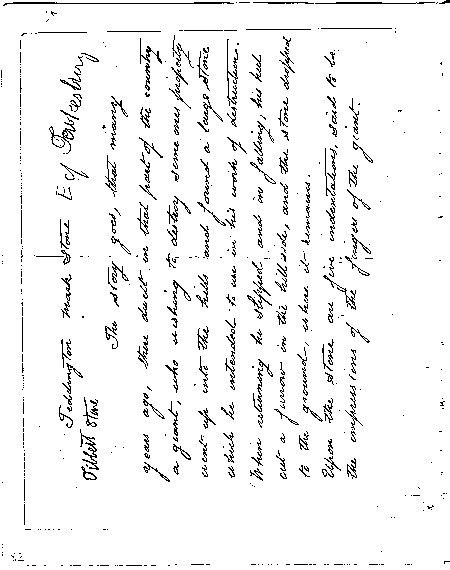 Teddington mark stone E of Tewkesbury
Tibbett Stone
The story goes, that many
years ago, there dwelt in that part of the country
a giant, who wishing to destroy some ones property
went up into the hills and found a large stone
which he intended to use in his work of destruction.
When returning he slipped and in falling, his heel
cut a furrow in the hill side, and the stone dropped
to the ground, where it remains.
Upon the stone are five indentations, said to be
the impressions of the fingers of the giant.